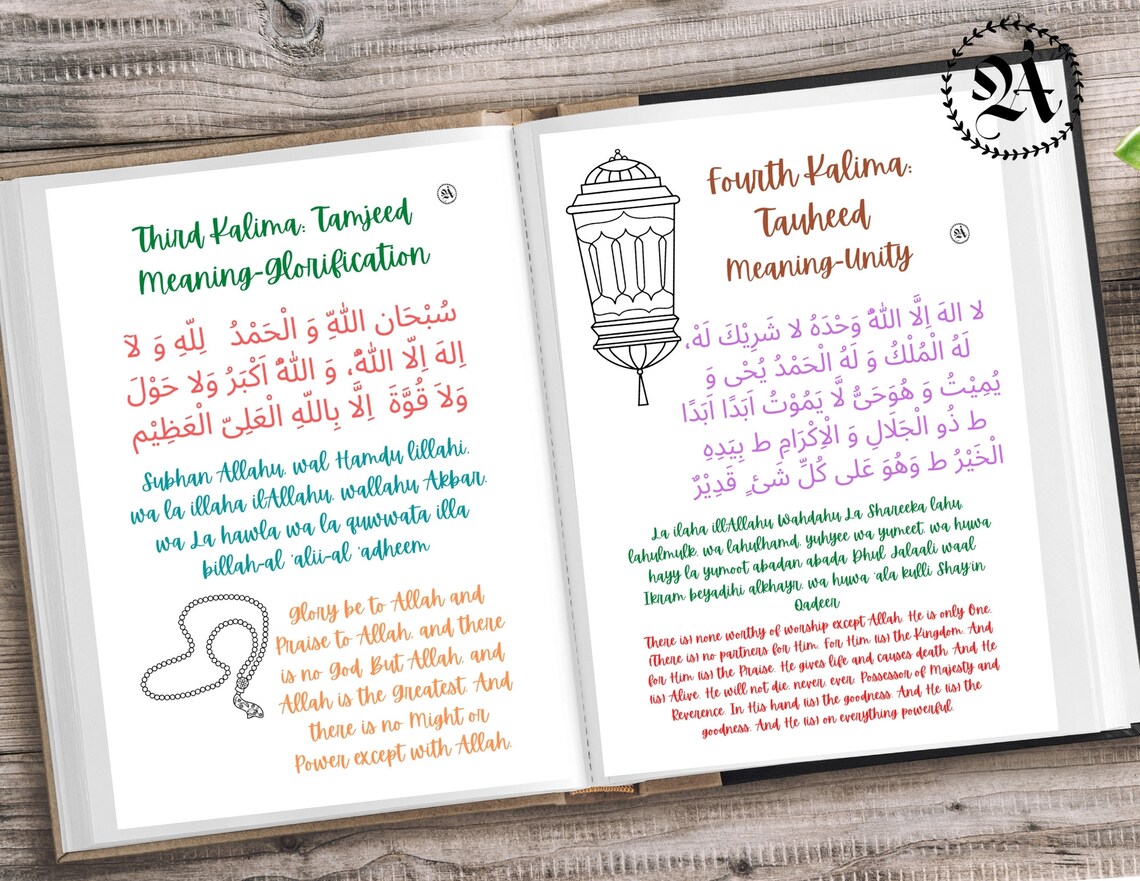 Third Kalima: Tamjeed
Meaning-Glorification
سُبْحَان اللّٰهِّ وَ الْحَمْدُ لِلّٰهِ وَ لآ
اِلهَ اِلّا اللّٰهُ، وَ اللّٰهُ اَكْبَرُ وَلا حَوْلَ
وَلاَ قُوَّةَ اِلَّا بِاللّٰهِ الْعَلِىِّ الْعَظِيْم
Subhan Allahu, wal Hamdu lillahi,
wa la illaha ilAllahu, wallahu Akbar.
wa La hawla wa la quwwata illa
billah-al 'alii-al 'adheem
Glory be to Allah and
Praise to Allah, and there
is no God But Allah, and
Allah is the Greatest. And
there is no Might or
Power except with Allah.
Fourth Kalima:
Tauheed
Meaning-Unity
لا الهَ اِلَّا اللّٰهُ وَحْدَهُ لا شَرِيْكَ لَهْ،
لَهُ الْمُلْكُ وَ لَهُ الْحَمْدُ يُحْى وَ
يُمِيْتُ وَ هُوَحَىُّ لَّا يَمُوْتُ اَبَدًا اَبَدًا
ط ذُو الْجَلَالِ وَ الْاِكْرَامِ ط بِيَدِهِ
الْخَيْرُ ط وَهُوَ عَلى كُلِّ شَئٍ قَدِيْرٌ
La ilaha illAllahu Wahdahu La Shareeka lahu,
lahulmulk, wa lahulhamd, yuhyee wa yumeet, wa huwa
hayy la yumoot abadan abada, Dhul Jalaali waal
Ikram beyadihi alkhayr, wa huwa 'ala kulli Shay'in
Qadeer
There is) none worthy of worship except Allah. He is only One.
(There is) no partners for Him. For Him (is) the Kingdom. And
for Him (is) the Praise. He gives life and causes death. And He
(is) Alive. He will not die, never, ever. Possessor of Majesty and
Reverence. In His hand (is) the goodness. And He (is) the
goodness. And He (is) on everything powerful.